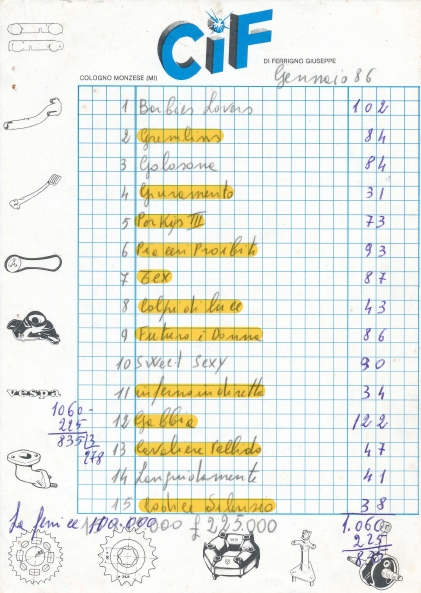 CiF
DI FERRIGNO GIUSEPPE
COLOGNO MONZESE (MI)
Gennaio 86
1 Barbies Lovers 102
2 Gremlins 84
3 Golosona 84
4 Giuramento 31
5 Porkys III 73
6 Piaceri Proibiti 93
7 Tex 87
8 Colpi di luce 43
9 Futuro è Donna 86
10 Sweet Sexy 90
11 inferno in diretta 34
vespa
1060-
225
835 3
278
12 Gabbia 122
13 Cavaliere Pallido 47
14 Languidamente 41
15 Codice Silenzio 38
La fenice 100.000 £ 225.000 1.060
225
835